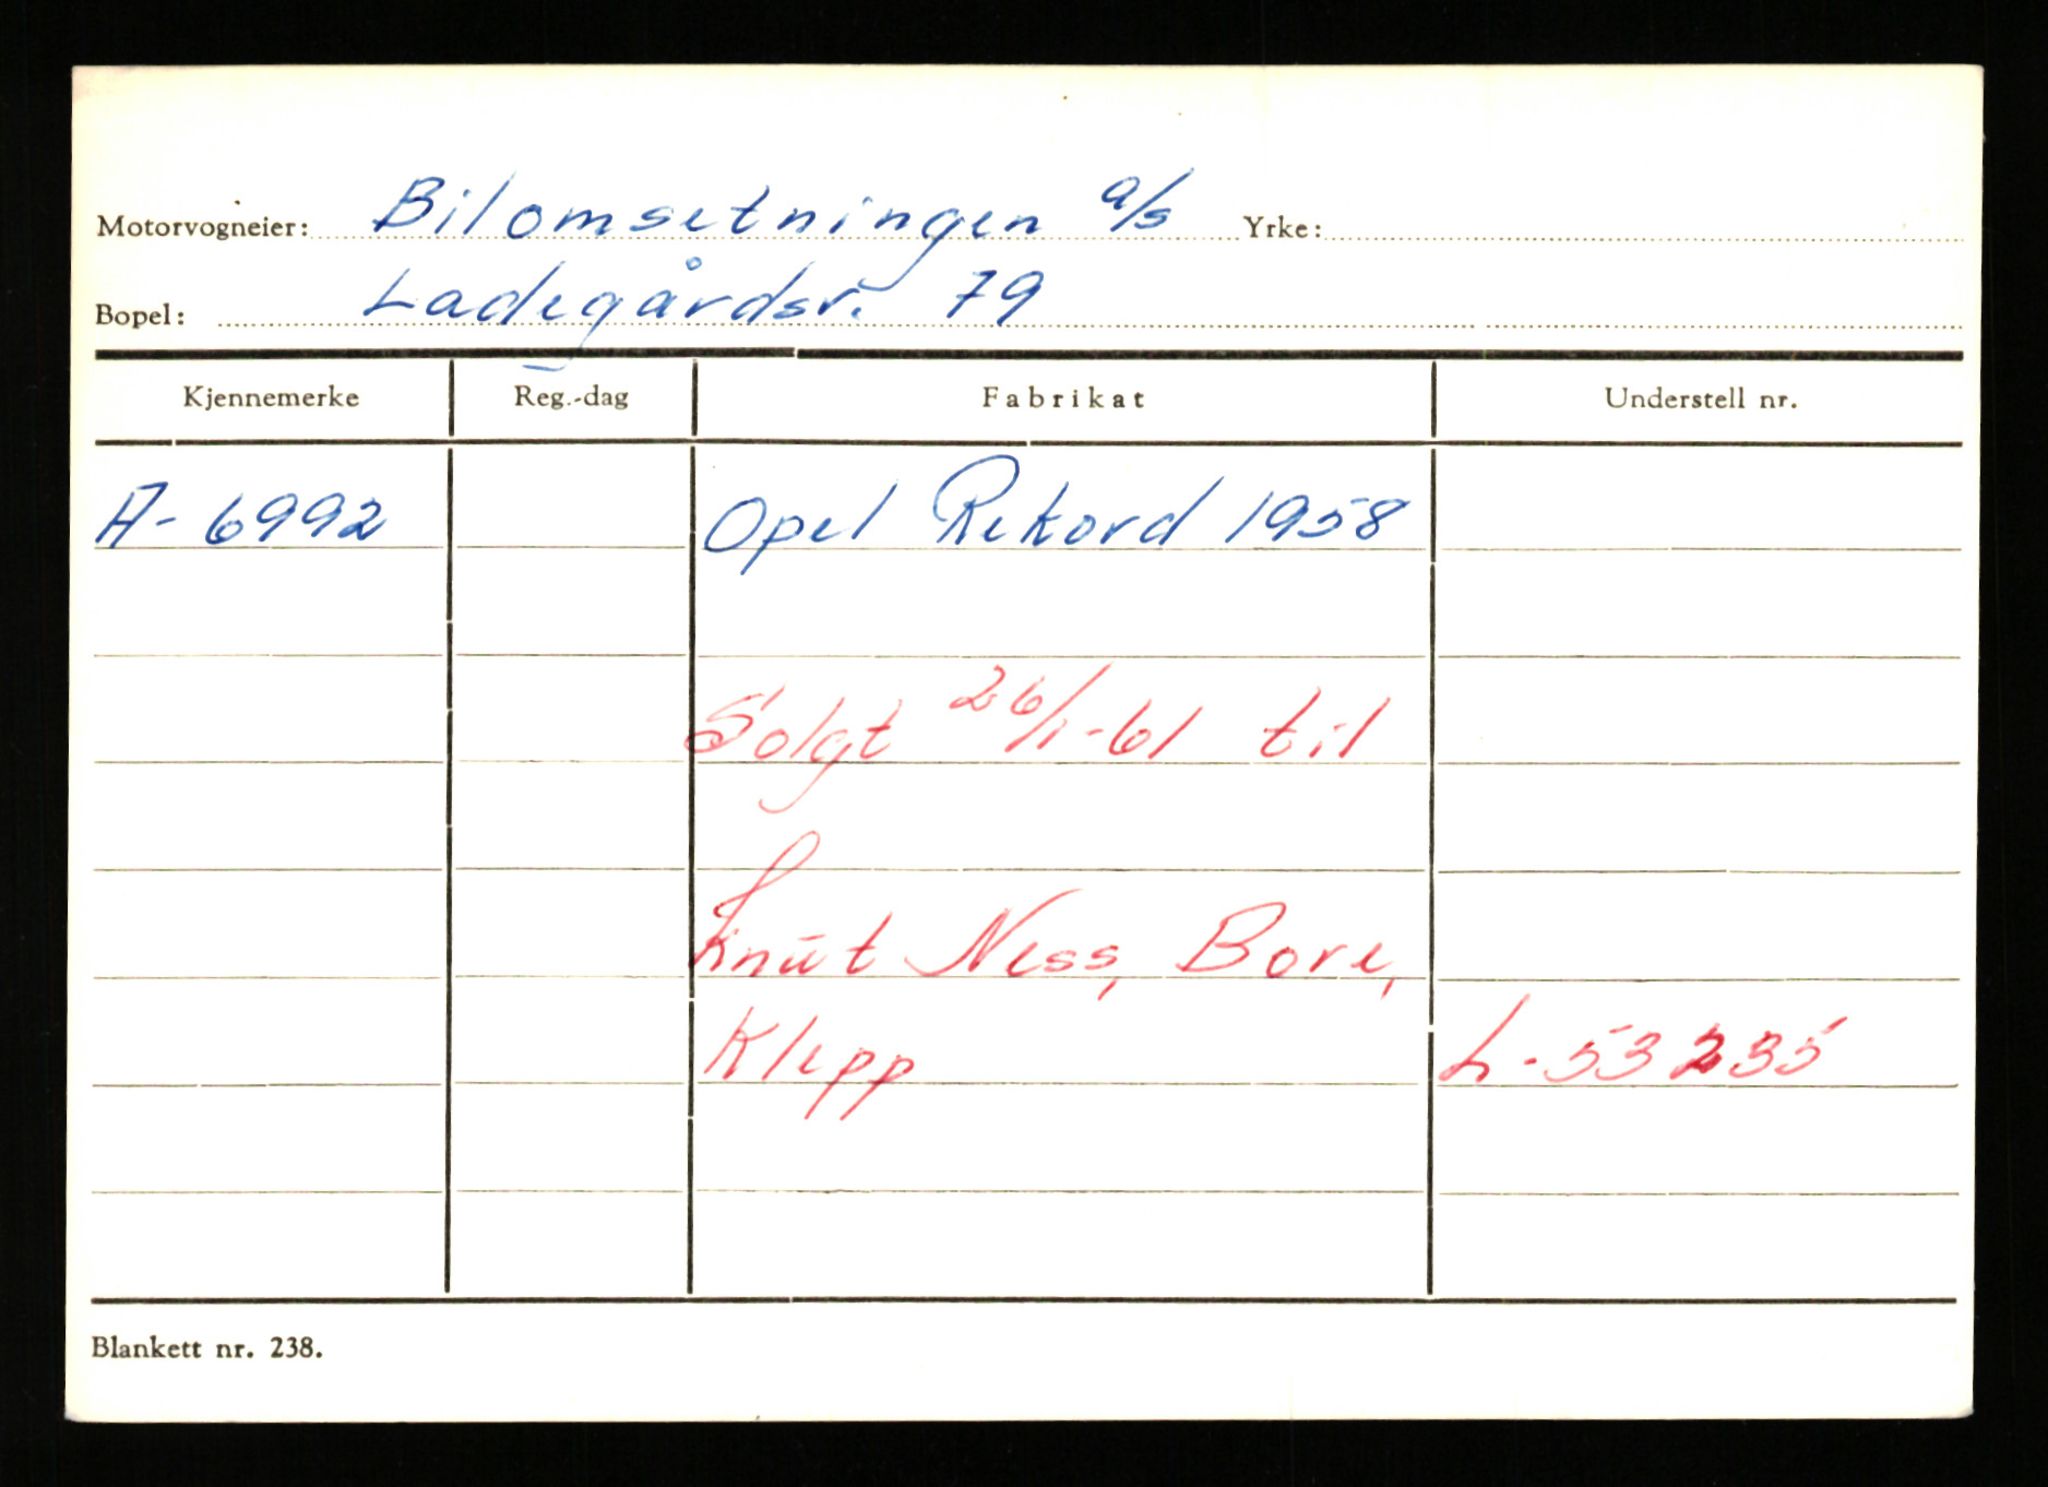 Motorvogneier: Bilomsetningen a/s Yrke:
Bopel: Ladegårdsv. 79
Kjennemerke Reg.-dag Fabrikat Understell nr.
A- 6992 Opel Rekord 1958
Solgt 26/1-61 til
Knut Ness, Bore,
Klepp L-53235
Blankett nr. 238.